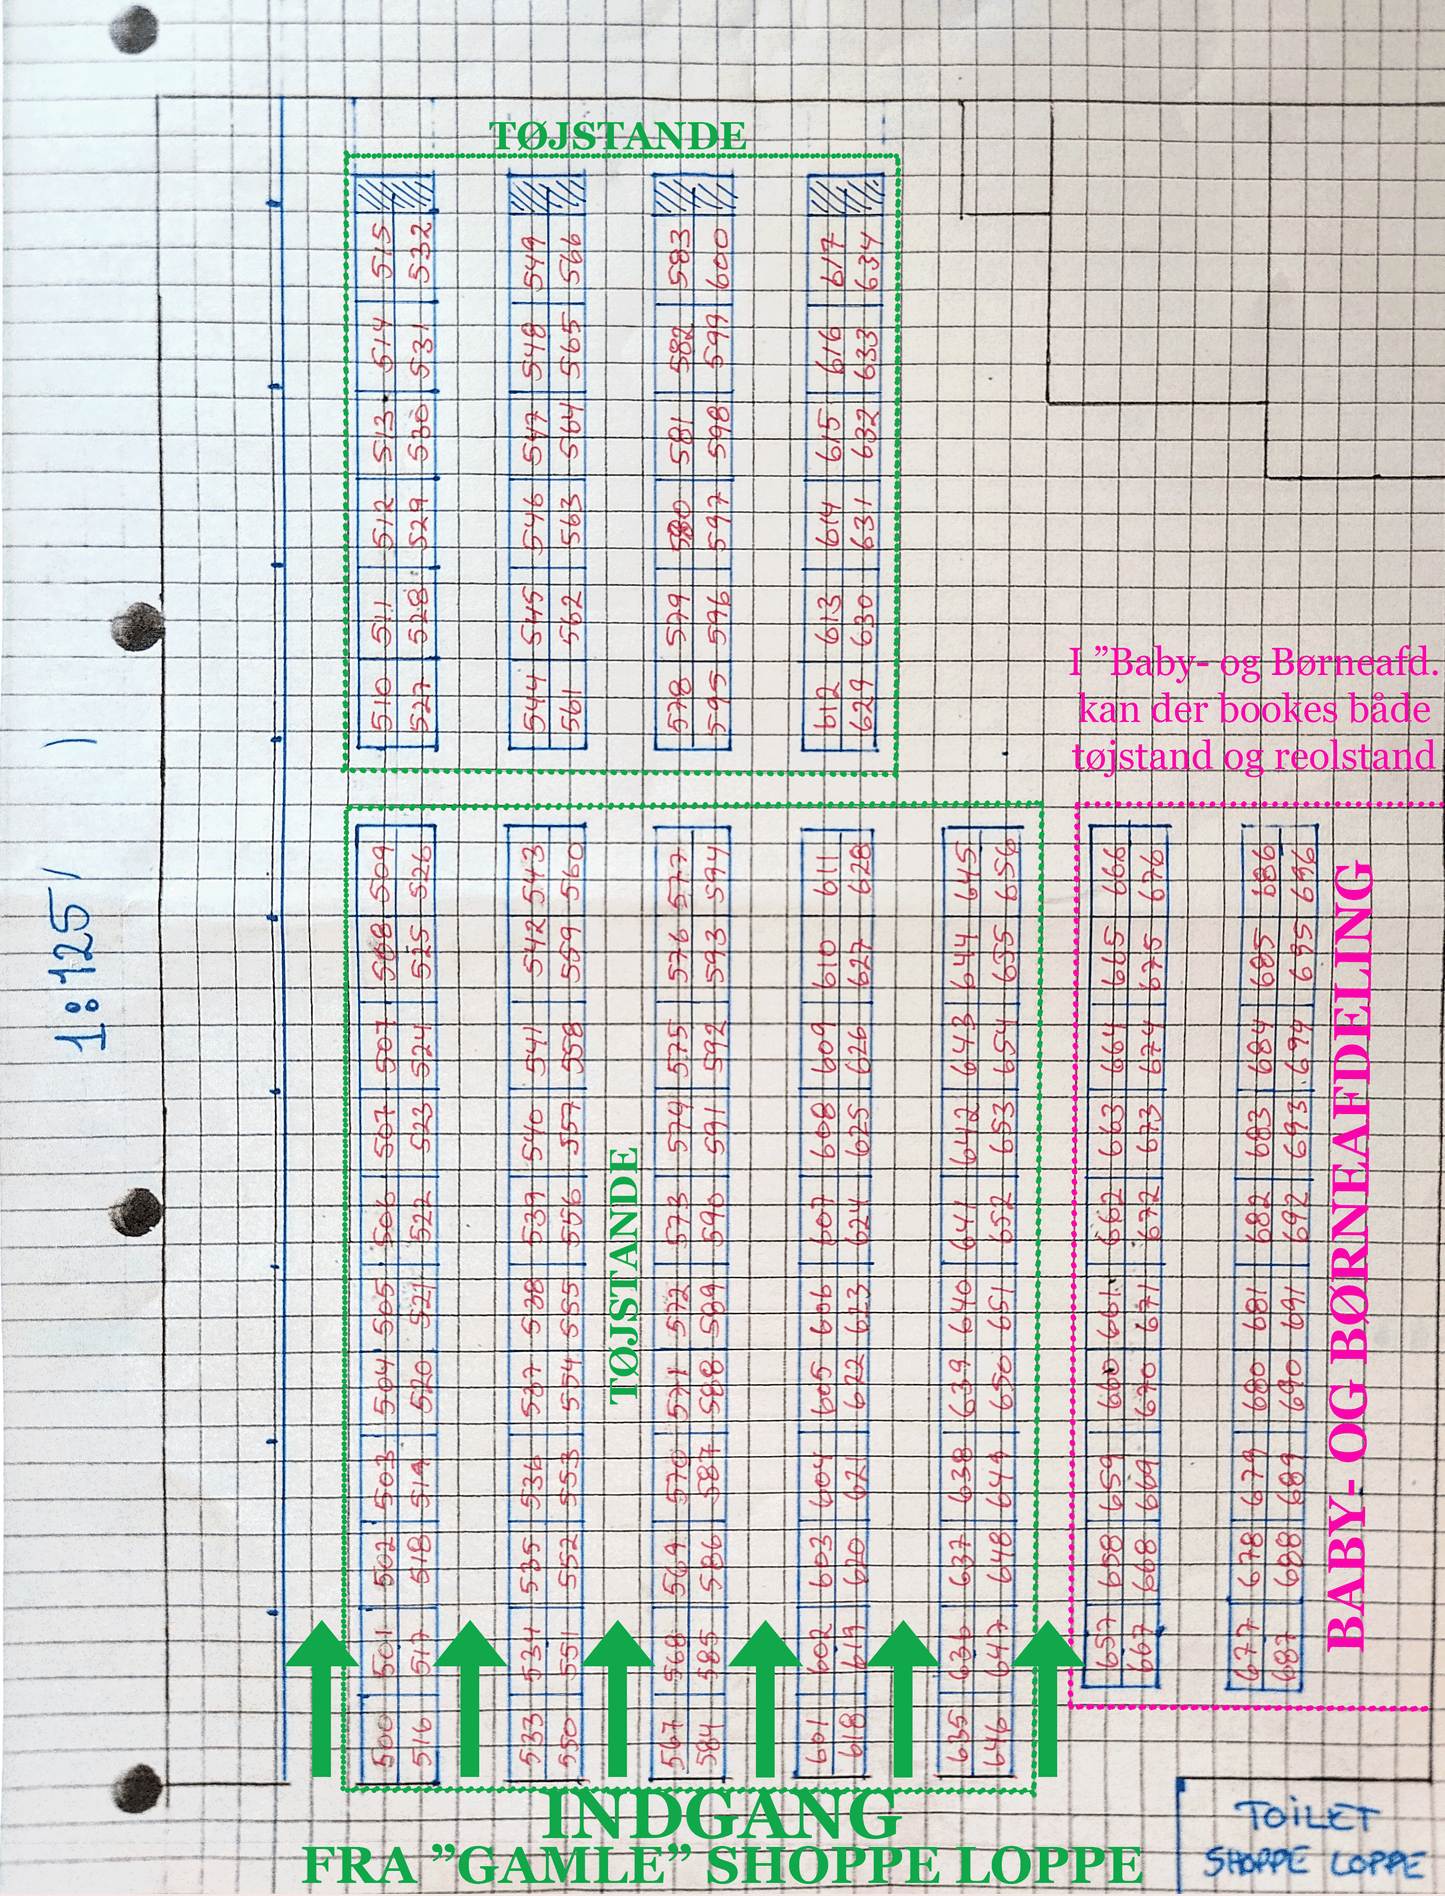 TØJSTANDE
510 511 512 513 514 515
527 528 529 530 531 532
544 545 546 547 548 549
561 562 563 564 565 566
578 579 580 581 582 583
595 596 597 598 599 600
612 613 614 615 616 617
629 630 631 632 633 634
1:125
I ”Baby- og Børneafd.
kan der bookes både
tøjstand og reolstand
500 501 502 503 504 505 506 507 507 508 509
516 517 518 519 520 521 522 523 524 525 526
533 534 535 536 537 538 539 540 541 542 543
550 551 552 553 554 555 556 557 558 559 560
TØJSTANDE
567 568 569 570 571 572 573 574 575 576 577
584 585 586 587 588 589 590 591 592 593 594
601 602 603 604 605 606 607 608 609 610 611
618 619 620 621 622 623 624 625 626 627 628
635 636 637 638 639 640 641 642 643 644 645
646 647 648 649 650 651 652 653 654 655 656
657 658 659 660 661 662 663 664 665 666
667 668 669 670 671 672 673 674 675 676
677 678 679 680 681 682 683 684 685 686
687 688 689 690 691 692 693 694 695 696
BABY- OG BØRNEAFDELING
INDGANG
FRA ”GAMLE” SHOPPE LOPPE
TOILET
SHOPPE LOPPE